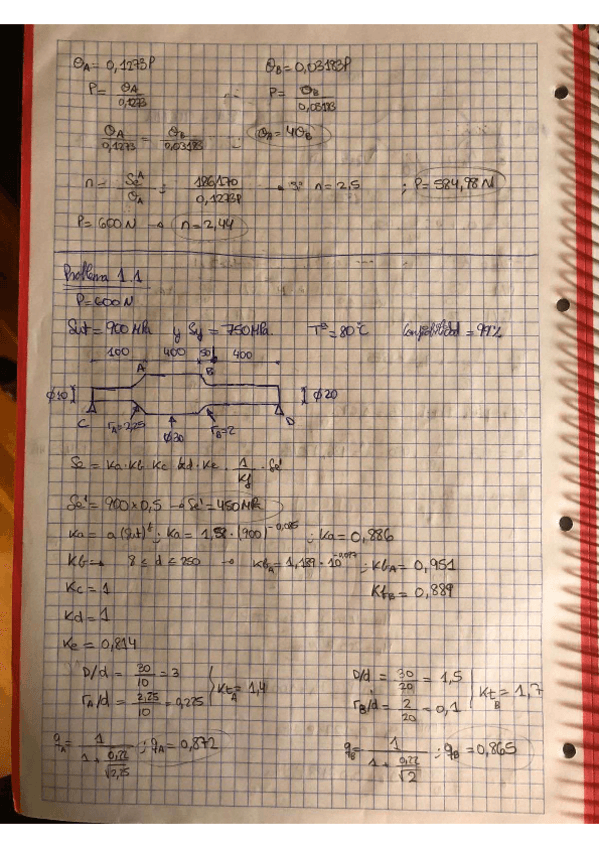 θA = 0,1273P θB = 0,03183P
P = θA/0,1273 ∴ P = θB/0,03183
θA/0,1273 = θB/0,03183 ∴ θA = 4θB
n = SeA/θA ; 186,170/0,1273P si n = 2,5 ; P = 584,98 N
P = 600 N → n = 2,44
Problema 1.1
P = 600 N
Sut = 900 MPa y Sy = 750 MPa. Tª = 80°C Confiabilidad = 99%
100 400 50 400
A B
ϕ10 ϕ20
C rA = 2,25 ϕ30 rB = 2 D
Se = Ka · Kb · Kc · Kd · Ke · 1/Kf · Se'
Se' = 900 × 0,5 → Se' = 450 MPa
Ka = a (Sut)^b ; Ka = 1,58 · (900)^-0,085 ; Ka = 0,886
Kb → 8 ≤ d ≤ 250 → KbA = 1,189 · 10^-0,097 ; KbA = 0,951
KbB = 0,889
Kc = 1
Kd = 1
Ke = 0,814
D/d = 30/10 = 3 D/d = 30/20 = 1,5
rA/d = 2,25/10 = 0,225 } KtA = 1,4 rB/d = 2/20 = 0,1 } KtB = 1,7
qA = 1/(1 + 0,22/√2,25) ; qA = 0,872 qB = 1/(1 + 0,22/√2) ; qB = 0,865